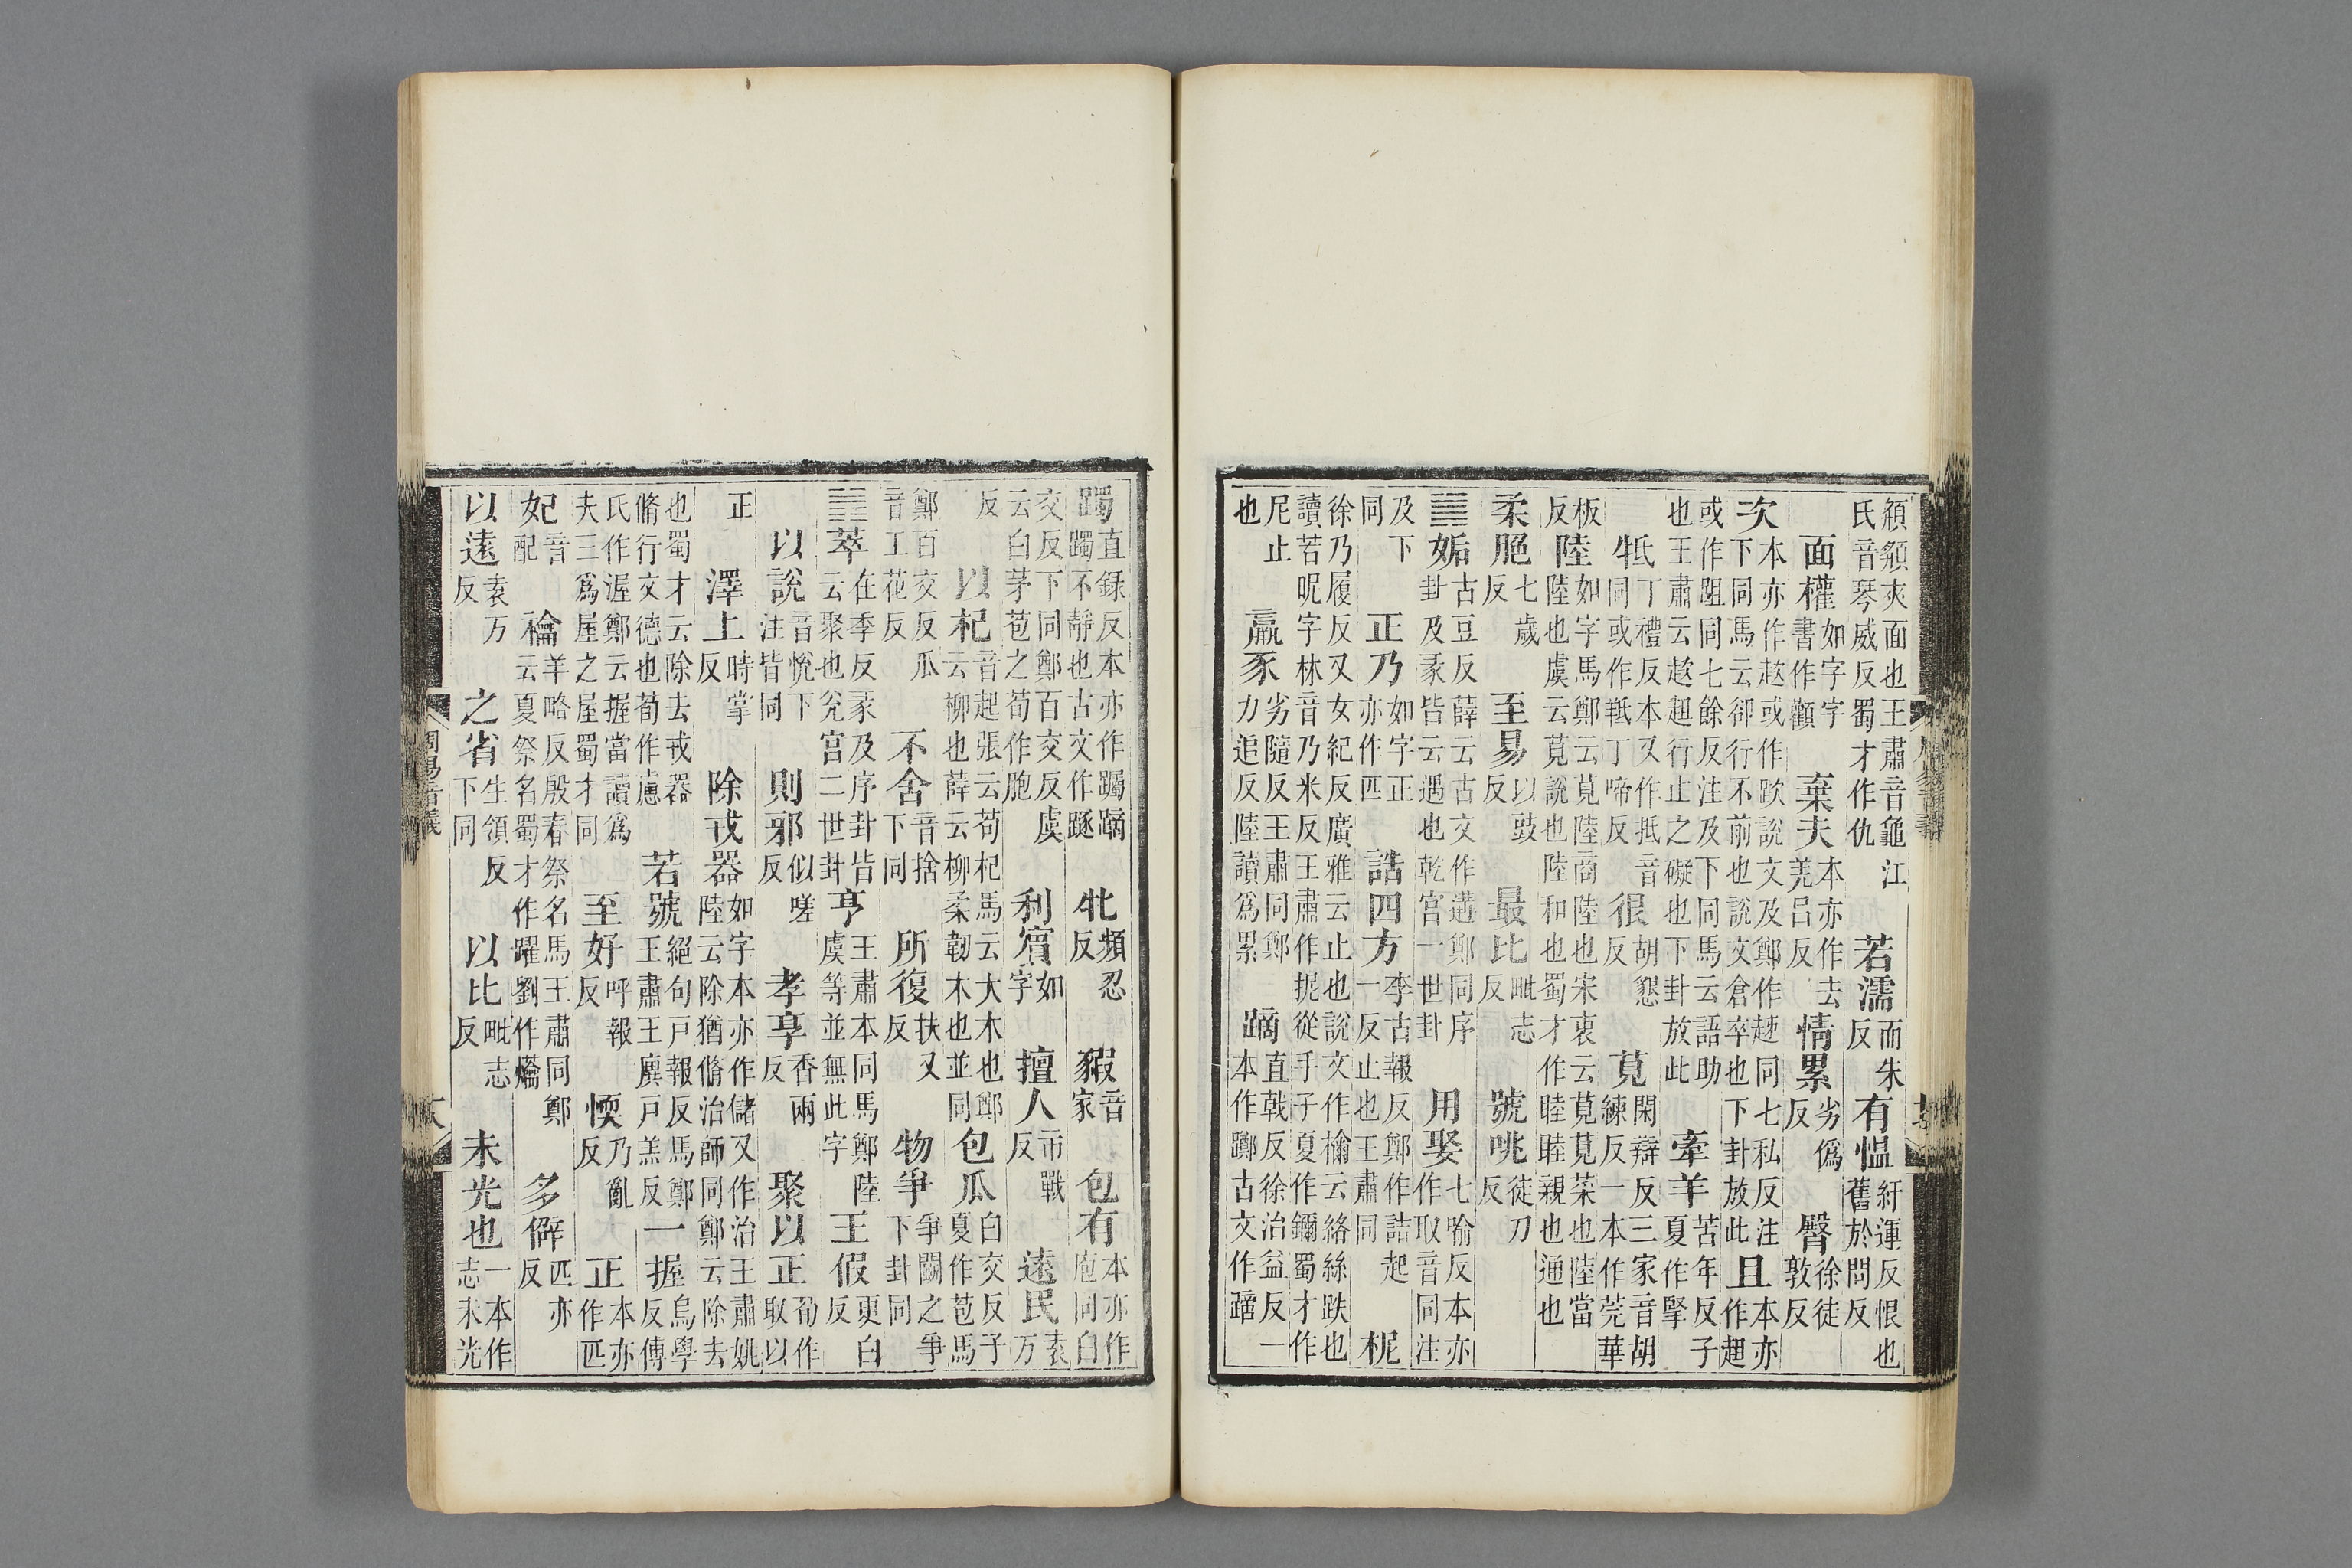 頯頯夾面也王肅音龜江氏音琴威反蜀才作仇 若濡而朱反 有慍紆運反恨也舊於問反
面權如字字書作顴 棄夫本亦作去羌呂反 情累劣僞反 臀徐徒敦反
次本亦作趑或作跌說文及鄭作趀同七私反注下同馬云卻行不前也說文倉卒也下卦放此 且本亦作趄
或作跙同七餘反注及下同馬云語助也王肅云趑趄行止之礙也下卦放此 牽羊苦年反子夏作掔
牴丁禮反本又作抵音同或作羝丁啼反 很胡懇反 莧閑辯反三家音胡練反一本作莞華
板反 陸如字馬鄭云莧陸商陸也宋衷云莧莧菜也陸當陸也虞云莧說也陸和也蜀才作睦睦親也通也
柔脆七歲反 至易以豉反 最比毗志反 號咷徒刀反
䷫姤古豆反薛云古文作遘鄭同序卦及彖皆云遇也乾宮一世卦 用娶七喻反本亦作取音同注
及下同 正乃如字正亦作匹 誥四方李古報反鄭作詰起一反止也王肅同 柅
徐乃履反又女紀反廣雅云止也說文作檷云絡絲趺也讀若昵字林音乃米反王肅作抳從手子夏作鑈蜀才作
尼止也 羸豕劣隨反王肅同鄭力追反陸讀爲累 蹢直戟反徐治益反一本作躑古文作蹄
躅直錄反本亦作躅蹢躅不靜也古文作 牝頻忍反 豭音家 包有本亦作庖同白
交反下同鄭百交反虞云白茅苞之荀作胞 利賓如字 擅人市戰反 遠民袁万
反 以杞音起張云荀杞馬云大木也鄭云柳也薛云柳柔韌木也並同 包瓜白交反子夏作苞馬
鄭百交反瓜音工花反 不舍音捨下同 所復扶又反 物爭爭鬭之爭下卦同
䷬萃在季反彖及序卦皆云聚也兌宮二世卦 亨王肅本同馬鄭陸虞等並無此字 王假更白反
以說音悅下注皆同 則邪似嗟反 孝享香兩反 聚以正荀作取以
正 澤上時掌反 除戎器如字本亦作儲又作治王肅姚陸云除猶脩治師同鄭云除去
也蜀才云除去戎器脩行文德也荀作慮 若號絕句戶報反馬鄭王肅王廙戶羔反 一握烏學反傅
氏作渥鄭云握當讀爲夫三爲屋之屋蜀才同 至好呼報反 愞乃亂反 正本亦作匹
妃音配 禴羊略反殷春祭名馬王肅同鄭云夏祭名蜀才作躍劉作爚 多僻匹亦反
以遠袁万反 之省生領反下同 以比毗志反 未光也一本作志未光
周易音義